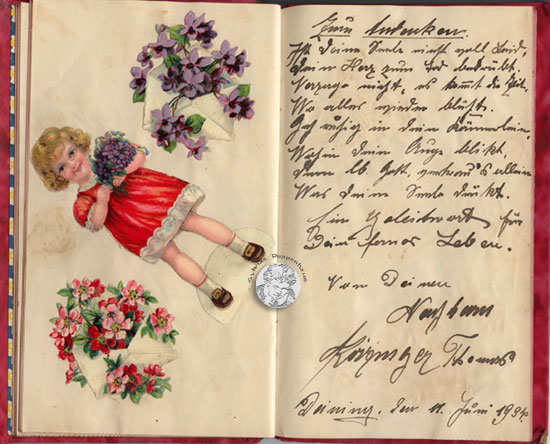 Zum Andenken.
Ist Deine Seele einst voll Leid,
Dein Herz zum Tod bedrückt
Verzage nicht, es kommt die Zeit,
Wo alles wieder blüht.
Geh ruhig in dein Kämmerlein.
Wohin dein Auge blickt.
dem lb. Gott, vertrau's allein
Was deine Seele drückt.
Ein Geleitwort für
Dein fernes Leben.
Von Deinem
Nachbarn
Thomas
Deining, den 11. Juni 1934.
Puppenhaus